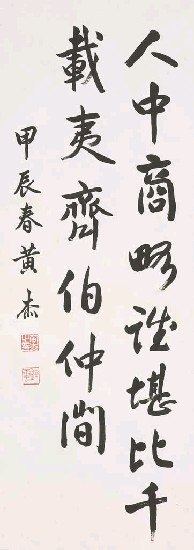 人中商略誰堪比千
載夷齊伯仲間
甲辰春黃杰